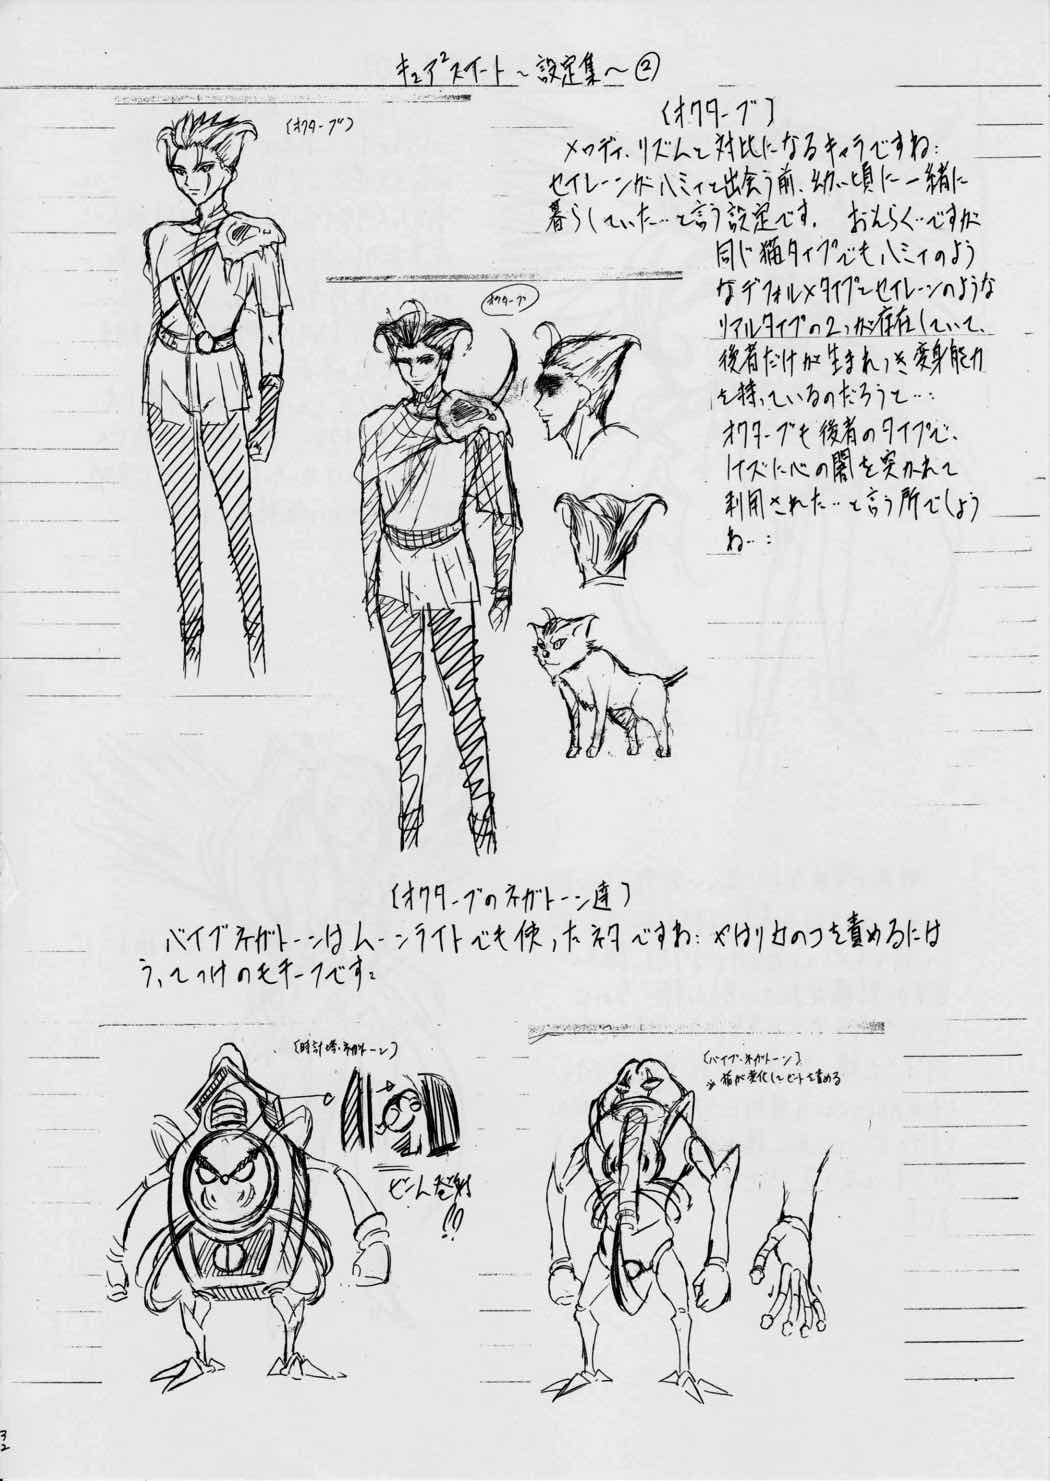 キュア²スイート～設定集～②
(オクターブ)
(オクターブ)
メロディ、リズムと対比になるキャラですね:
セイレーンがハミィと出会う前、幼い頃に一緒に
暮らしていた…と言う設定です。 おそらく…ですが
同じ猫タイプでもハミィのよう
なデフォルメタイプとセイレーンのような
リアルタイプの2つが存在していて、
後者だけが生まれつき変身能力
を持っているのだろうと…:
オクターブも後者のタイプで、
ノイズに心の闇を突かれて
利用された…と言う所でしよう
ね…:
オクターブ
(オクターブのネガトーン達)
バイブネガトーンはムーンライトでも使ったネタですね: やはり女のコを責めるには
うってつけのモチーフです:
(時計塔・ネガトーン)
ビーム発射
!!?
(バイブ・ネガトーン)
猫が変化してビートを責める
32